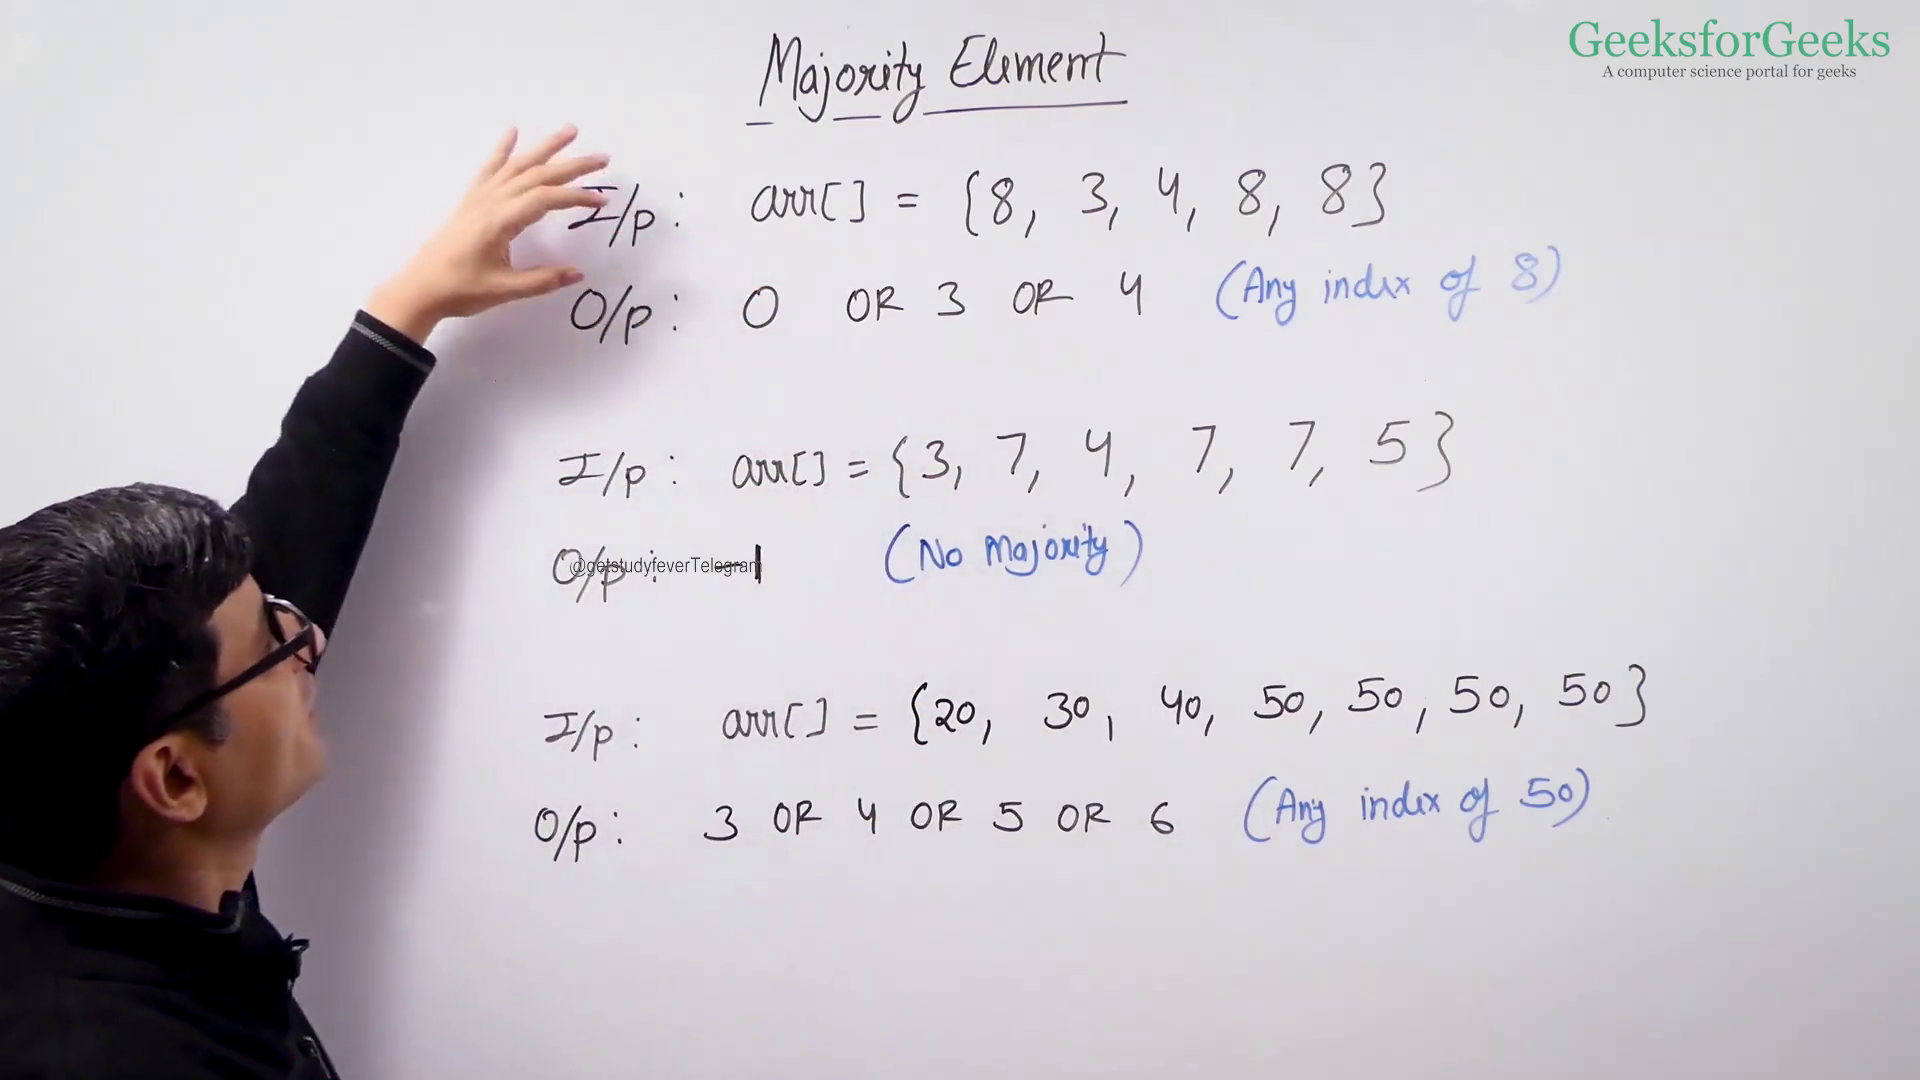 GeeksforGeeks
A computer science portal for geeks
Majority Element
I/p : arr[] = {8, 3, 4, 8, 8}
O/p : 0 OR 3 OR 4 (Any index of 8)
I/p : arr[] = {3, 7, 4, 7, 7, 5}
O/p : -1 (No Majority)
@getstudyfeverTelegram
I/p : arr[] = {20, 30, 40, 50, 50, 50, 50}
O/p : 3 OR 4 OR 5 OR 6 (Any index of 50)